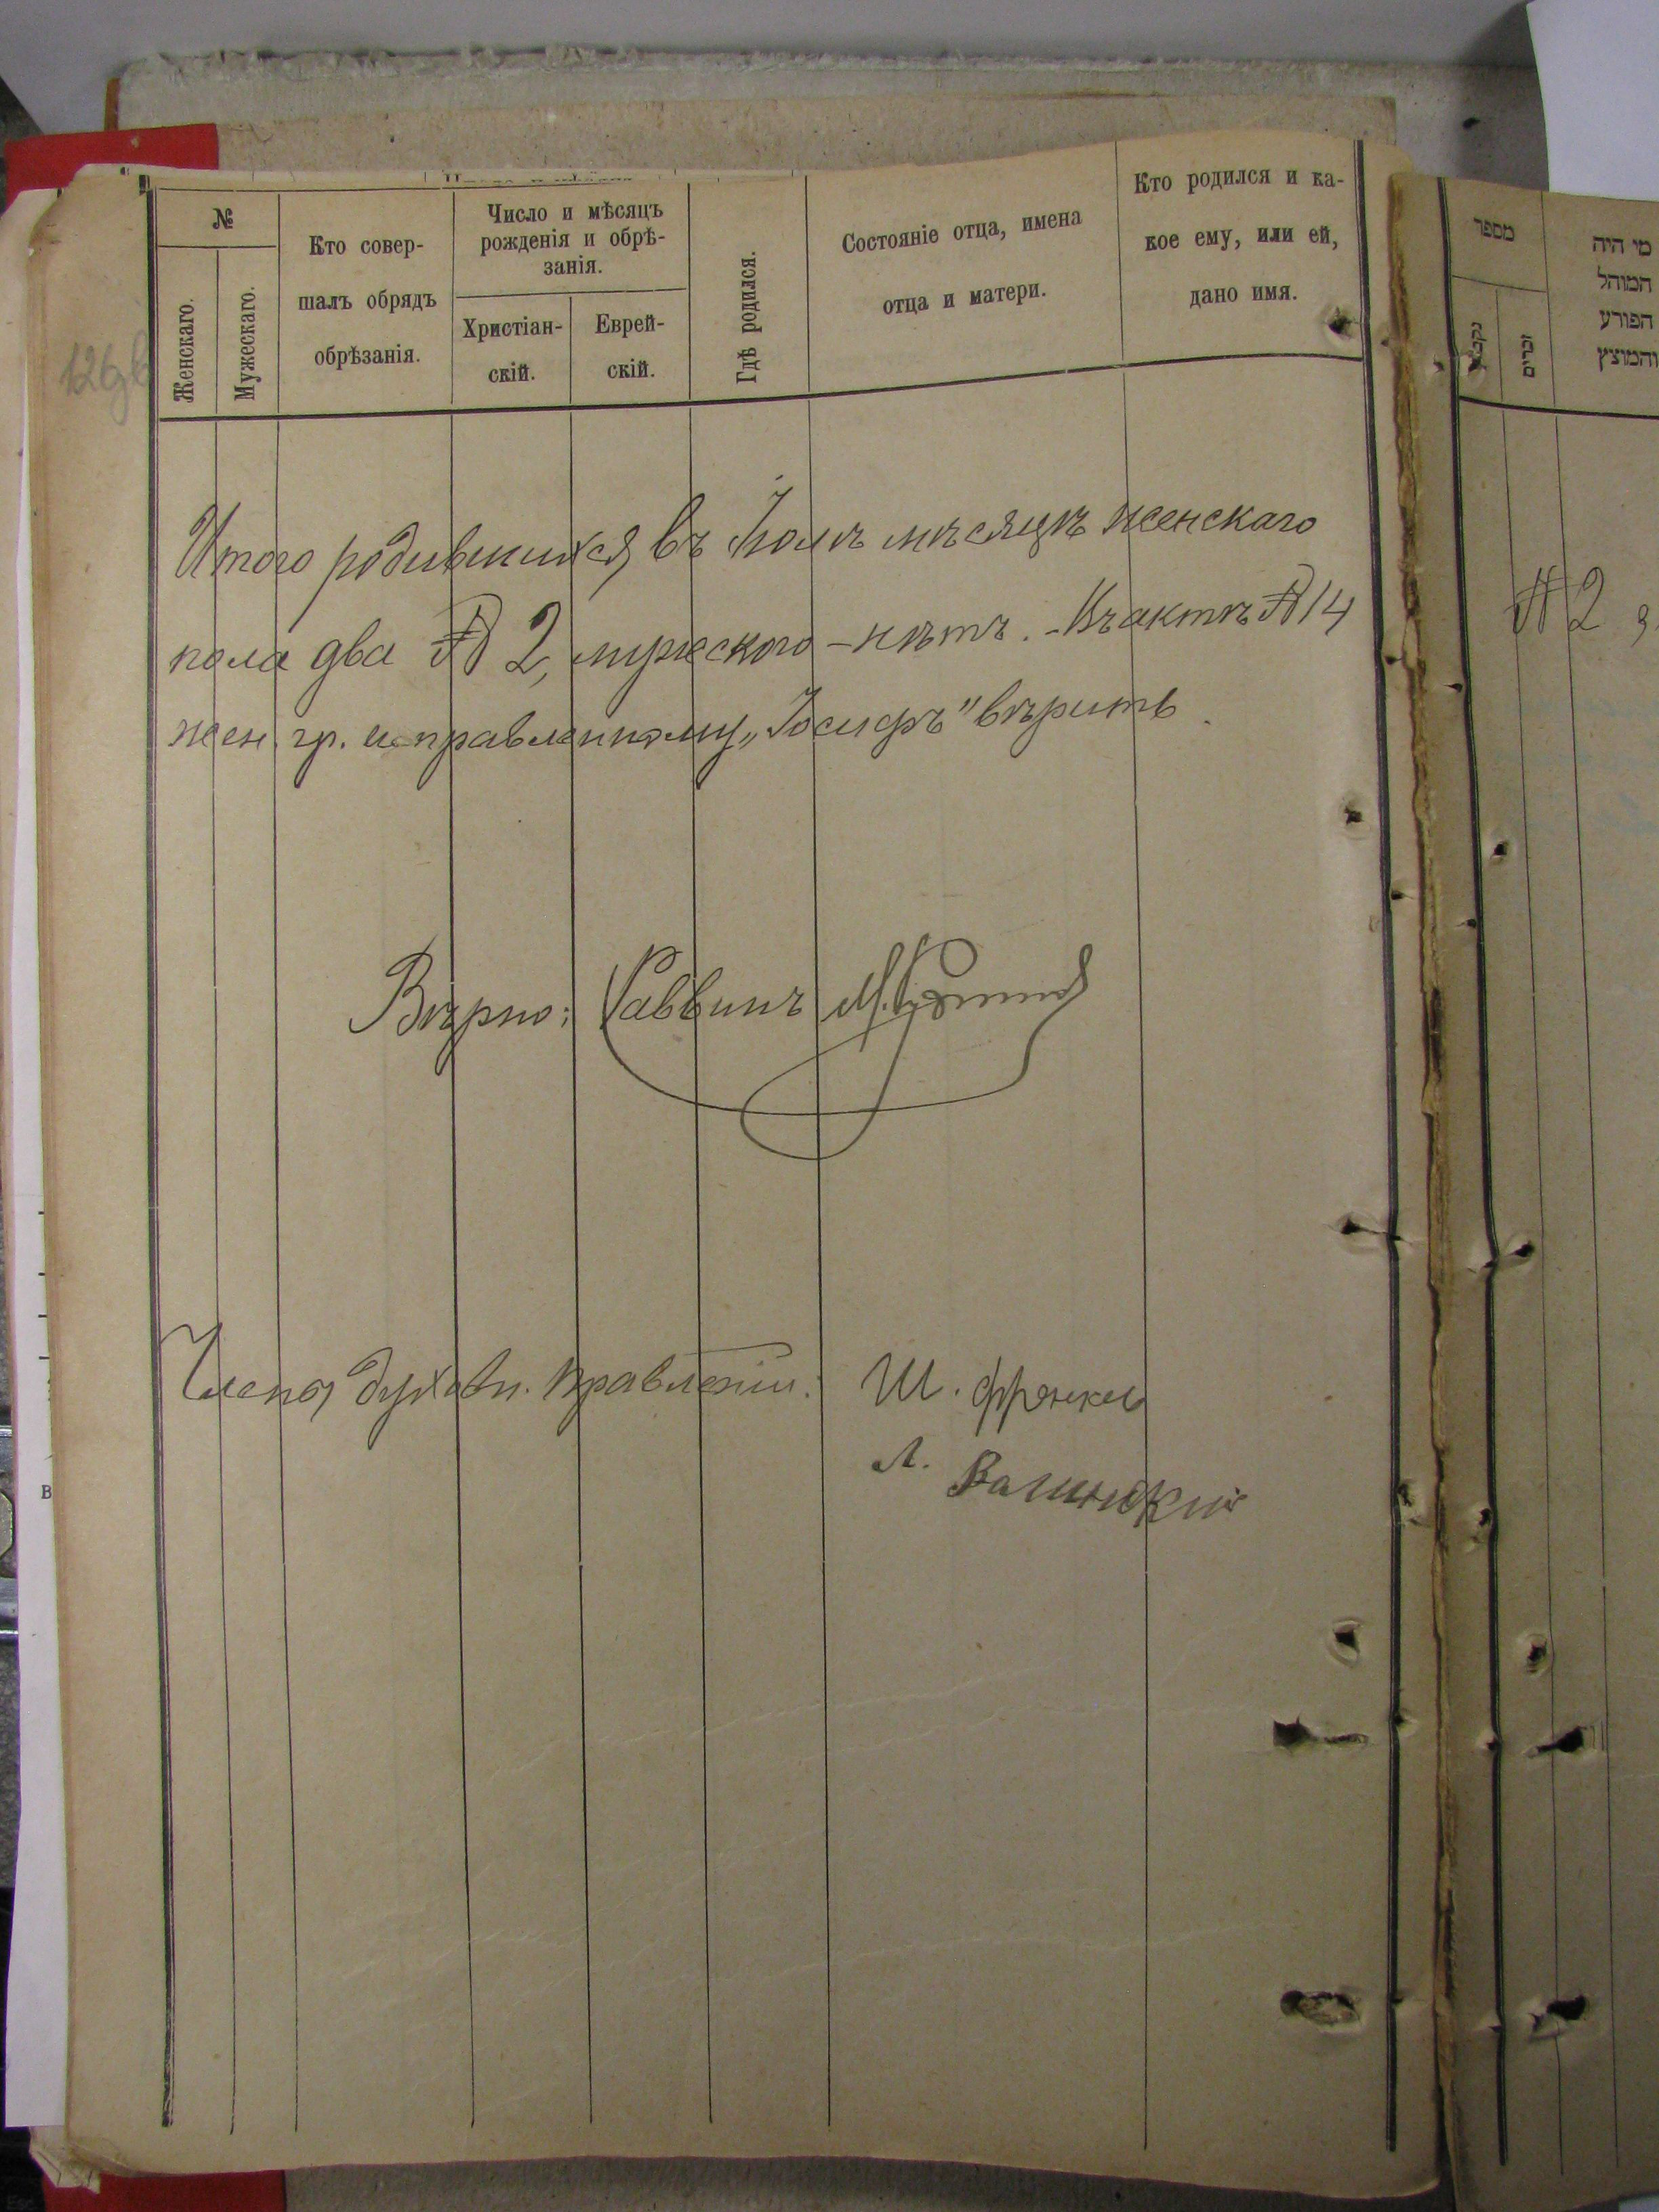 №
Женскаго.
Мужескаго.
Кто совер-
шалъ обрядъ
обрѣзанія.
Число и мѣсяцъ
рожденія и обрѣ-
занія.
Христіан-
скій.
Еврей-
скій.
Гдѣ родился.
Состояніе отца, имена
отца и матери.
Кто родился и ка-
кое ему, или ей,
дано имя.
Итого родившихся въ мѣсяцѣ женскаго
пола два № 2, мужескаго - нѣтъ. - Въ актѣ № 14
жен. гр. исправленному „Іосифъ" вѣрить.
Вѣрно: Раввинъ М.
Члены духовн. правленія: Ш. Френкель
Л.
מספר
נקבות
זכרים
מי היה
המוהל
הפורע
והמוצץ
№ 2